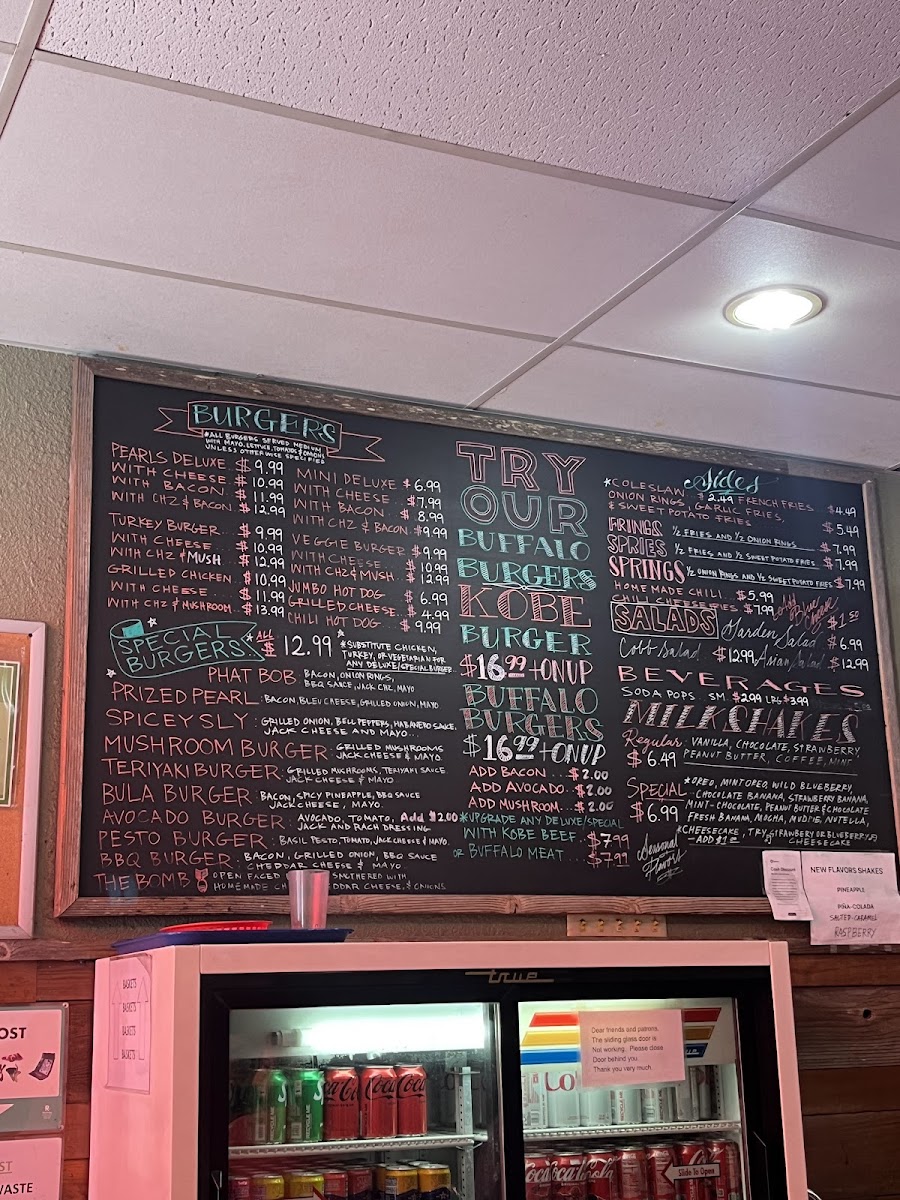 BURGERS
*ALL BURGERS SERVED MEDIUM
WITH MAYO, LETTUCE, TOMATOES & ONIONS
UNLESS OTHERWISE SPECIFIED
PEARLS DELUXE $9.99
WITH CHEESE $10.99
WITH BACON $11.99
WITH CHZ & BACON $12.99
TURKEY BURGER $9.99
WITH CHEESE $10.99
WITH CHZ & MUSH $12.99
GRILLED CHICKEN $10.99
WITH CHEESE $11.99
WITH CHZ & MUSHROOM $13.99
MINI DELUXE $6.99
WITH CHEESE $7.99
WITH BACON $8.99
WITH CHZ & BACON $9.99
VEGGIE BURGER $9.99
WITH CHEESE $10.99
WITH CHZ & MUSH $12.99
JUMBO HOT DOG $6.99
GRILLED CHEESE $4.99
CHILI HOT DOG $9.99
SPECIAL BURGERS *ALL $12.99
*SUBSTITUTE CHICKEN,
TURKEY, OR VEGETARIAN FOR
ANY DELUXE/SPECIAL BURGER
PHAT BOB BACON, ONION RINGS,
BBQ SAUCE, JACK CHZ, MAYO
PRIZED PEARL: BACON, BLEU CHEESE, GRILLED ONION, MAYO
SPICEY SLY: GRILLED ONION, BELL PEPPERS, HABANERO SAUCE,
JACK CHEESE AND MAYO...
MUSHROOM BURGER: GRILLED MUSHROOMS
JACK CHEESE & MAYO
TERIYAKI BURGER: GRILLED MUSHROOMS, TERIYAKI SAUCE
JACK CHEESE & MAYO
BULA BURGER: BACON, SPICY PINEAPPLE, BBQ SAUCE
JACK CHEESE, MAYO.
AVOCADO BURGER: AVOCADO, TOMATO, Add $2.00
JACK AND RACH DRESSING
PESTO BURGER: BASIL PESTO, TOMATO, JACK CHEESE & MAYO.
BBQ BURGER: BACON, GRILLED ONION, BBQ SAUCE
CHEDDAR CHEESE & MAYO
THE BOMB OPEN FACED SMOTHERED WITH
HOMEMADE CH DDAR CHEESE, & ONIONS
TRY
OUR
BUFFALO
BURGERS
KOBE
BURGER
$16.99 + ON UP
BUFFALO
BURGERS
$16.99 + ON UP
ADD BACON...$2.00
ADD AVOCADO..$2.00
ADD MUSHROOM...$2.00
*UPGRADE ANY DELUXE/SPECIAL
WITH KOBE BEEF $7.99
OR BUFFALO MEAT... $7.99
Sides
*COLESLAW $2.49 FRENCH FRIES $4.49
ONION RINGS, GARLIC FRIES,
& SWEET POTATO FRIES $5.49
FRINGS ½ FRIES AND ½ ONION RINGS $7.99
SPRIES ½ FRIES AND ½ SWEET POTATO FRIES $7.99
SPRINGS ½ ONION RINGS AND ½ SWEET POTATO FRIES $7.99
HOMEMADE CHILI $5.99
CHILI CHEESE FRIES $7.99
$1.50
SALADS Garden Salad $6.99
Cobb Salad $12.99, Asian Salad $12.99
BEVERAGES
SODA POPS SM $2.99 LRG $3.99
MILKSHAKES
Regular: VANILLA, CHOCOLATE, STRAWBERRY,
$6.49 PEANUT BUTTER, COFFEE, MINT
SPECIAL *OREO, MINT OREO, WILD BLUEBERRY,
CHOCOLATE BANANA, STRAWBERRY BANANA,
$6.99 MINT-CHOCOLATE, PEANUT BUTTER & CHOCOLATE
FRESH BANANA, MOCHA, MUDPIE, NUTELLA,
*CHEESECAKE, TRY STRAWBERRY OR BLUEBERRY
- ADD $1 CHEESECAKE
Seasonal
Flavors
Cash Discount
NEW FLAVORS SHAKES
PINEAPPLE
PIÑA-COLADA
SALTED-CARAMEL
RASPBERRY
true
BASKETS
BASKETS
BASKETS
BASKETS
Dear friends and patrons,
The sliding glass door is
Not working. Please close
Door behind you.
Thank you very much.
Coca-Cola
Slide To Open
OST
ST
WASTE